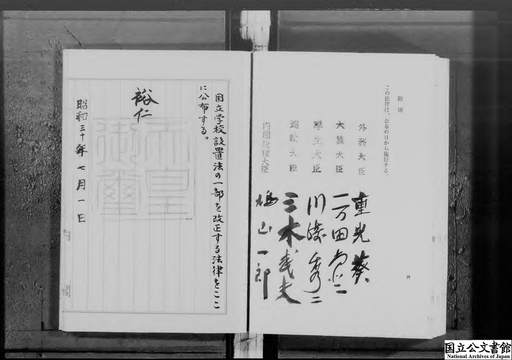 附則
この法律は、公布の日から施行する。
外務大臣 重光葵
大蔵大臣 一万田尚登
厚生大臣 川崎秀二
運輸大臣 三木武夫
内閣総理大臣 鳩山一郎
国立学校設置法の一部を改正する法律をここ
に公布する。
裕仁
昭和三十年七月一日
国立公文書館
National Archives of Japan